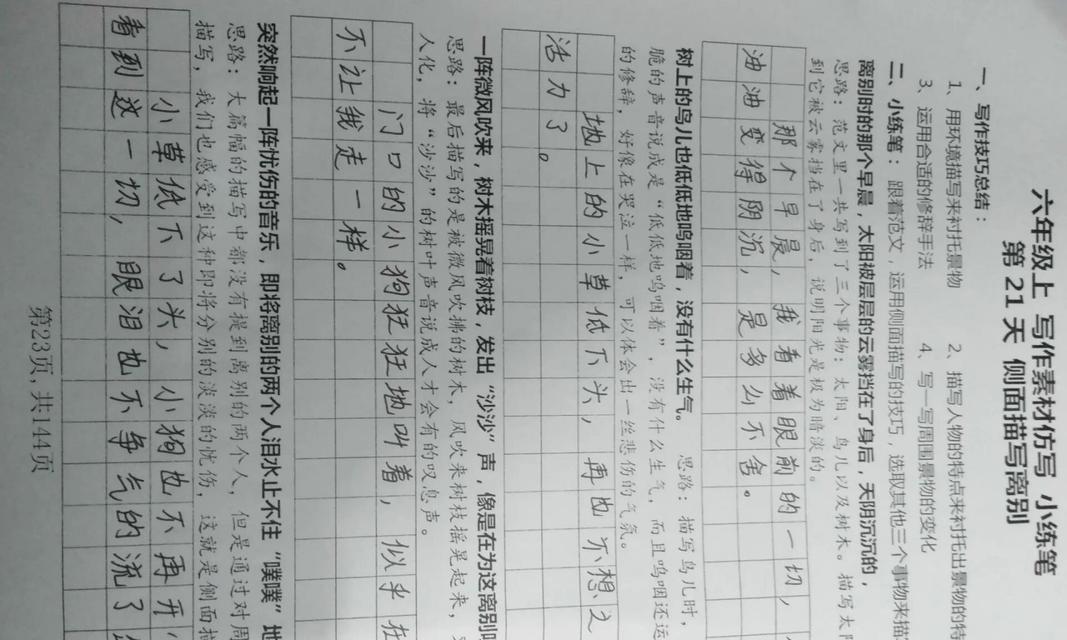 六年级上 写作素材仿写 小练笔
第 21 天 侧面描写离别
一、写作技巧总结：
1、用环境描写来衬托景物 2、描写人物的特点来衬托出景物的特
3、运用合适的修辞手法 4、写一写周围景物的变化
二、小练笔：跟着范文，运用侧面描写的技巧，选取其他三个事物来描
离别时的那个早晨，太阳被层层的云雾挡在了身后，天阴沉沉的，
思路：范文里一共写到了三个事物：太阳、鸟儿以及树木。描写太阳
到它被云雾挡在了身后，说明阳光是极为暗淡的。
那个早晨，我看着眼前的一切，
油油变得阴沉，是多么不舍。
树上的鸟儿也低低地呜咽着，没有什么生气。 思路：描写鸟儿时，
脆的声音说成是“低低地呜咽着”，没有什么生气，而且呜咽还运
的修辞，好像在哭泣一样，可以体会出一丝悲伤的气氛。
地上的小草低下头，再也不想之
活力了。
一阵微风吹来，树木摇晃着树枝，发出“沙沙”声，像是在为这离别叹
思路：最后描写的是被微风吹拂的树木，风吹来树枝摇晃起来，
人化，将“沙沙”的树叶声音说成人才会有的叹息声。
门口的小狗狂狂地叫着，似乎在
不让我走一样。
突然响起一阵忧伤的音乐，即将离别的两个人泪水止不住“噗噗”地
思路：大篇幅的描写中都没有提到离别的两个人，但是通过对周
描写，我们也感受到这种即将分别的淡淡的忧伤，这就是侧面描
小草低下了头，小狗也不再开
看到这一切，眼泪也不争气的流了
第23页，共144页